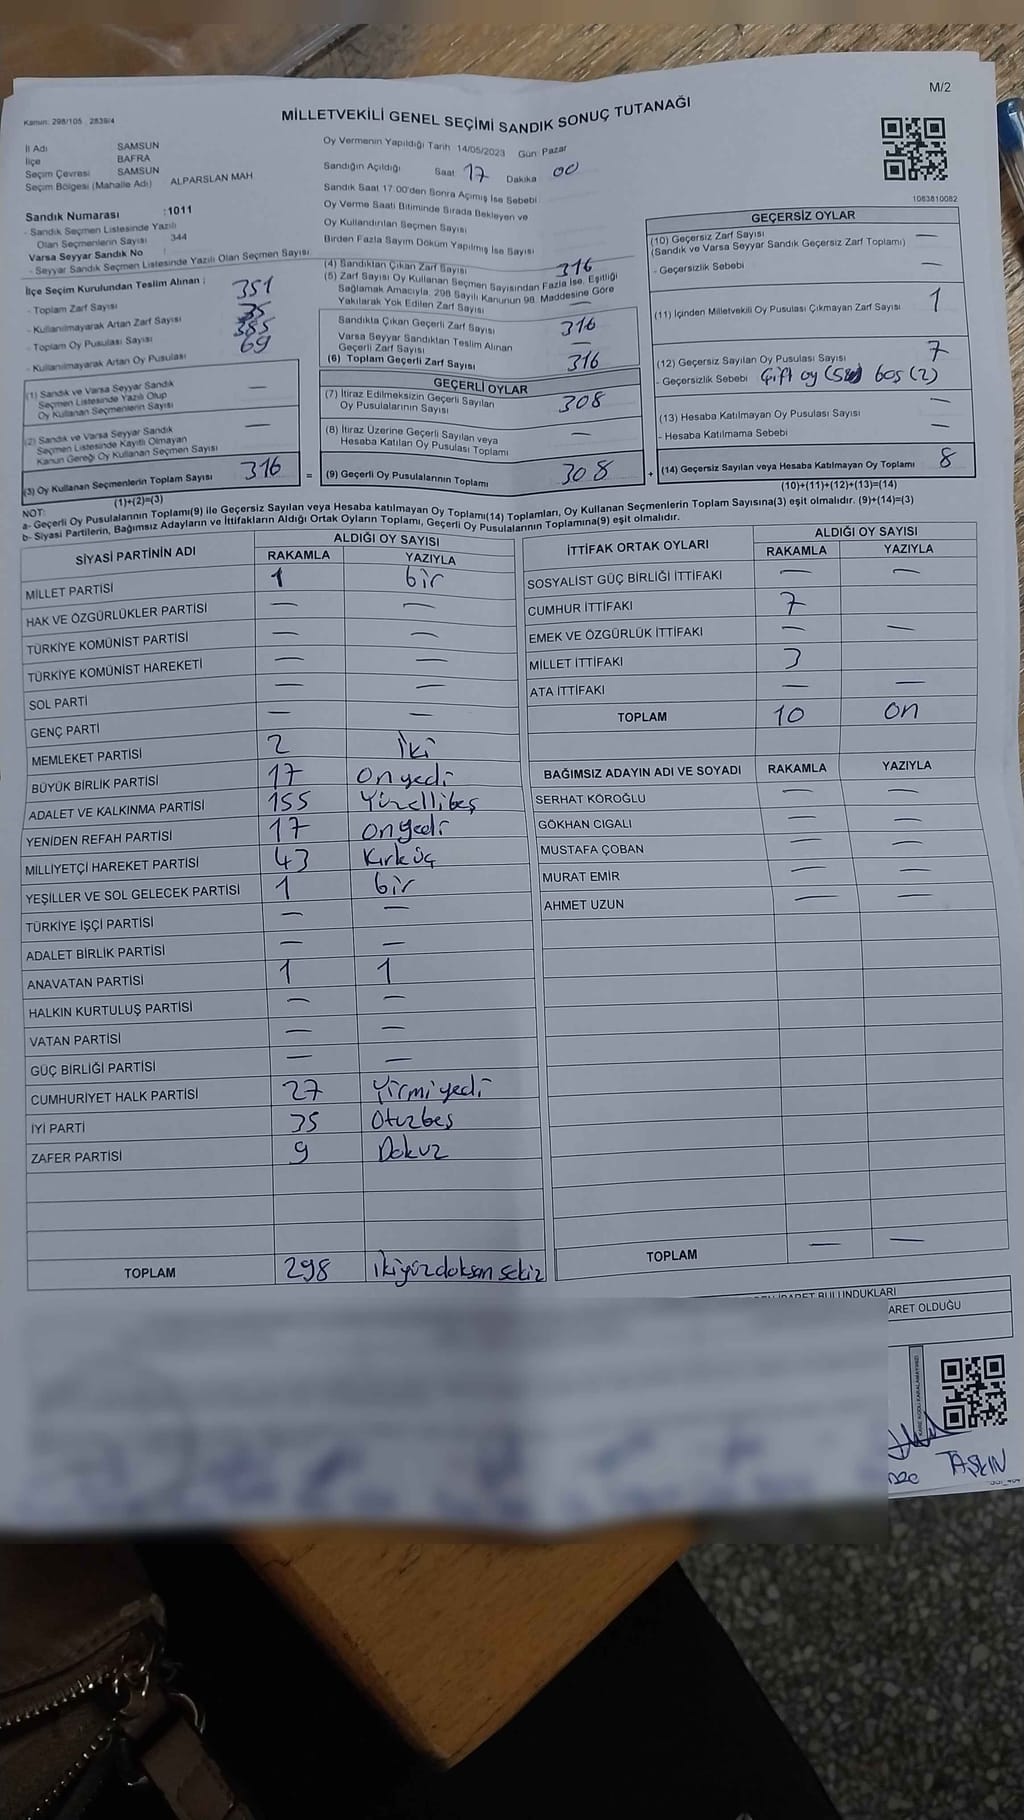 M/2
Kanun: 298/105 2839/4
MİLLETVEKİLİ GENEL SEÇİMİ SANDIK SONUÇ TUTANAĞI
İl Adı SAMSUN
İlçe BAFRA
Seçim Çevresi SAMSUN
Seçim Bölgesi (Mahalle Adı) ALPARSLAN MAH
Sandık Numarası :1011
- Sandık Seçmen Listesinde Yazılı
Olan Seçmenlerin Sayısı 344
Varsa Seyyar Sandık No :
- Seyyar Sandık Seçmen Listesinde Yazılı Olan Seçmen Sayısı
İlçe Seçim Kurulundan Teslim Alınan ;
- Toplam Zarf Sayısı 351
- Kullanılmayarak Artan Zarf Sayısı 35
- Toplam Oy Pusulası Sayısı 385
- Kullanılmayarak Artan Oy Pusulası 69
(1) Sandık ve Varsa Seyyar Sandık
Seçmen Listesinde Yazılı Olup
Oy Kullanan Seçmenlerin Sayısı —
(2) Sandık ve Varsa Seyyar Sandık
Seçmen Listesinde Kayıtlı Olmayan
Kanun Gereği Oy Kullanan Seçmen Sayısı —
(3) Oy Kullanan Seçmenlerin Toplam Sayısı 316
(1)+(2)=(3)
Oy Vermenin Yapıldığı Tarih 14/05/2023 Gün Pazar
Sandığın Açıldığı Saat 17 Dakika 00
Sandık Saat 17.00'den Sonra Açımış İse Sebebi
Oy Verme Saati Bitiminde Sırada Bekleyen ve
Oy Kullandırılan Seçmen Sayısı
Birden Fazla Sayım Döküm Yapılmış İse Sayısı
(4) Sandıktan Çıkan Zarf Sayısı 316
(5) Zarf Sayısı Oy Kullanan Seçmen Sayısından Fazla İse, Eşitliği
Sağlamak Amacıyla, 298 Sayılı Kanunun 98. Maddesine Göre
Yakılarak Yok Edilen Zarf Sayısı —
Sandıkta Çıkan Geçerli Zarf Sayısı 316
Varsa Seyyar Sandıktan Teslim Alınan
Geçerli Zarf Sayısı —
(6) Toplam Geçerli Zarf Sayısı 316
GEÇERLİ OYLAR
(7) İtiraz Edilmeksizin Geçerli Sayılan
Oy Pusulalarının Sayısı 308
(8) İtiraz Üzerine Geçerli Sayılan veya
Hesaba Katılan Oy Pusulası Toplamı —
= (9) Geçerli Oy Pusulalarının Toplamı 308
1083810082
GEÇERSİZ OYLAR
(10) Geçersiz Zarf Sayısı —
(Sandık ve Varsa Seyyar Sandık Geçersiz Zarf Toplamı)
- Geçersizlik Sebebi —
(11) İçinden Milletvekili Oy Pusulası Çıkmayan Zarf Sayısı 1
(12) Geçersiz Sayılan Oy Pusulası Sayısı 7
- Geçersizlik Sebebi Çift oy (5) boş (2)
(13) Hesaba Katılmayan Oy Pusulası Sayısı —
- Hesaba Katılmama Sebebi —
+ (14) Geçersiz Sayılan veya Hesaba Katılmayan Oy Toplamı 8
(10)+(11)+(12)+(13)=(14)
NOT:
a- Geçerli Oy Pusulalarının Toplamı(9) ile Geçersiz Sayılan veya Hesaba katılmayan Oy Toplamı(14) Toplamları, Oy Kullanan Seçmenlerin Toplam Sayısına(3) eşit olmalıdır. (9)+(14)=(3)
b- Siyasi Partilerin, Bağımsız Adayların ve İttifakların Aldığı Ortak Oyların Toplamı, Geçerli Oy Pusulalarının Toplamına(9) eşit olmalıdır.
SİYASİ PARTİNİN ADI ALDIĞI OY SAYISI
RAKAMLA YAZIYLA
MİLLET PARTİSİ 1 bir
HAK VE ÖZGÜRLÜKLER PARTİSİ — —
TÜRKİYE KOMÜNİST PARTİSİ — —
TÜRKİYE KOMÜNİST HAREKETİ — —
SOL PARTİ — —
GENÇ PARTİ — —
MEMLEKET PARTİSİ 2 iki
BÜYÜK BİRLİK PARTİSİ 17 onyedi
ADALET VE KALKINMA PARTİSİ 155 Yüzellibeş
YENİDEN REFAH PARTİSİ 17 onyedi
MİLLİYETÇİ HAREKET PARTİSİ 43 Kırküç
YEŞİLLER VE SOL GELECEK PARTİSİ 1 bir
TÜRKİYE İŞÇİ PARTİSİ — —
ADALET BİRLİK PARTİSİ — —
ANAVATAN PARTİSİ 1 1
HALKIN KURTULUŞ PARTİSİ — —
VATAN PARTİSİ — —
GÜÇ BİRLİĞİ PARTİSİ — —
CUMHURİYET HALK PARTİSİ 27 Yirmiyedi
İYİ PARTİ 35 Otuzbeş
ZAFER PARTİSİ 9 Dokuz
TOPLAM 298 ikiyüzdoksan sekiz
İTTİFAK ORTAK OYLARI ALDIĞI OY SAYISI
RAKAMLA YAZIYLA
SOSYALİST GÜÇ BİRLİĞİ İTTİFAKI — —
CUMHUR İTTİFAKI 7
EMEK VE ÖZGÜRLÜK İTTİFAKI — —
MİLLET İTTİFAKI 3
ATA İTTİFAKI — —
TOPLAM 10 on
BAĞIMSIZ ADAYIN ADI VE SOYADI RAKAMLA YAZIYLA
SERHAT KÖROĞLU — —
GÖKHAN CIGALI — —
MUSTAFA ÇOBAN — —
MURAT EMİR — —
AHMET UZUN — —
TOPLAM — —
BULUNDUKLARI
ARET OLDUĞU
KARE KODU KARALAMAYINIZ!
TAŞKIN